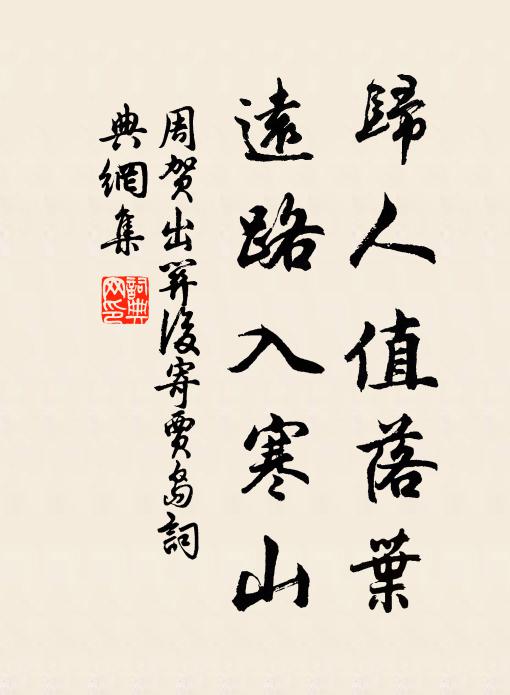 歸人值落葉
遠路入寒山
周賀出關後寄賈島詞
典網集
詞典
网印